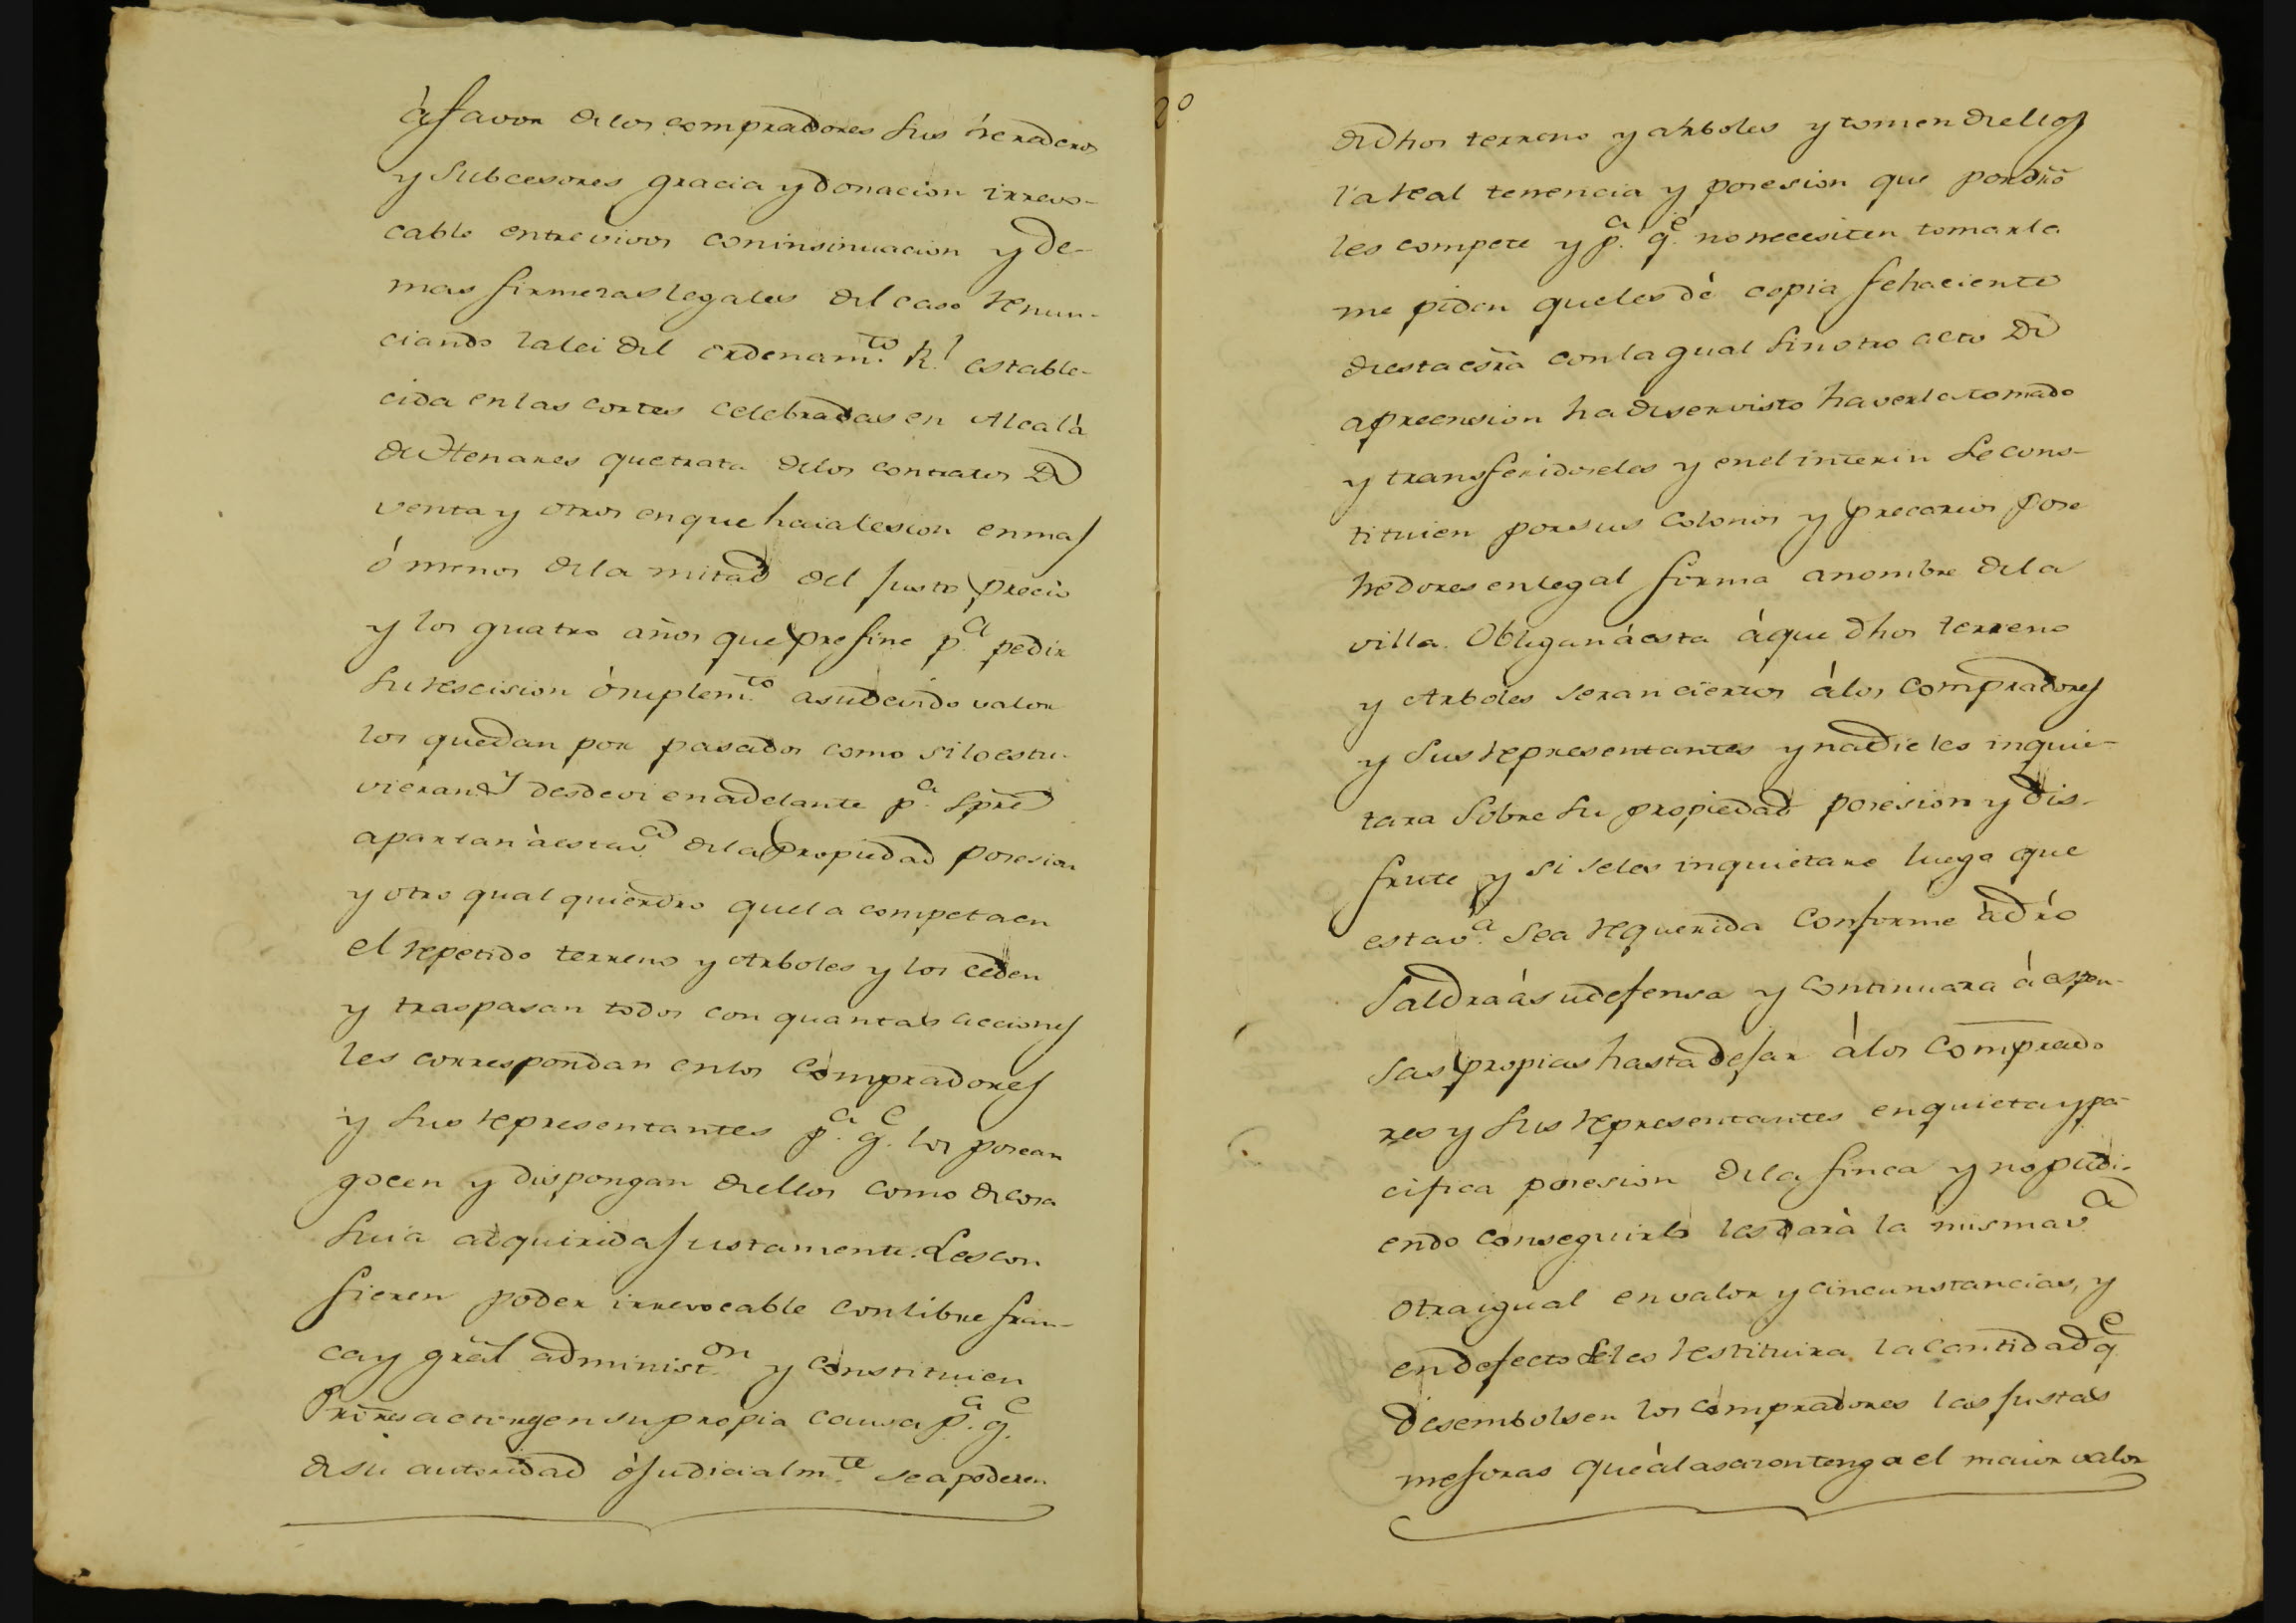 à favor de los compradores sus herederos
y Subcesores gracia y donacion irrevo-
cable entre vivos con insinuacion y de-
mas firmezas legales del caso renun-
ciando la lei del ordenamto. Rl. estable-
cida en las cortes celebradas en Alcalà
de Henares que trata de los contratos de
venta y otros en que haia lesion en mas
ó menos de la mitad del justo precio
y los quatro años que prefine pa. pedir
su rescision ó suplemto. a su devido valor
los quedan por pasados como si lo estu-
vieran Y desde oi en adelante pa. spre
apartan à esta va. de la propiedad posesion
y otro qualquier dro que la competa en
el repetido terreno y Arboles y los ceden
y traspasan todos con quantas acciones
les correspondan en los compradores
y sus representantes pa. qe. los posean
gocen y dispongan de ellos como de cosa
suia adquirida justamente. Les con
fieren poder irrevocable con libre fran-
ca y gral administon. y constituien
Prôres actores en su propia causa pa. qe.
de su autoridad ó judicialmte. se apoderen
2º
de dhos terreno y arboles y tomen de ellos
la real tenencia y posesion que por dro
les compete y pa. qe. no necesiten tomarla
me piden que les dè copia fehaciente
de esta esra con la qual sin otro acto de
apreension ha de ser visto haverla tomado
y transferidoseles y en el interin se cons-
tituien por sus colonos y precarios pose
hedores en legal forma a nombre de la
villa. Obligan á esta á que dhos terreno
y Arboles seran ciertos á los compradores
y sus representantes y nadie les inquie-
tara sobre su propiedad posesion y dis-
frute y si se les inquietare luego que
esta va. sea requerida conforme à dro
Saldra á su defensa y continuara á espen-
sas propias hasta dejar á los comprado
res y sus representantes en quieta y pa-
cifica posesion de la finca y no pudi-
endo conseguirlo les darà la misma va
otra igual en valor y circunstancias, y
en defecto se les restituira la cantidad qe
desembolsen los compradores las justas
mejoras que à la sazon tenga el maior valor